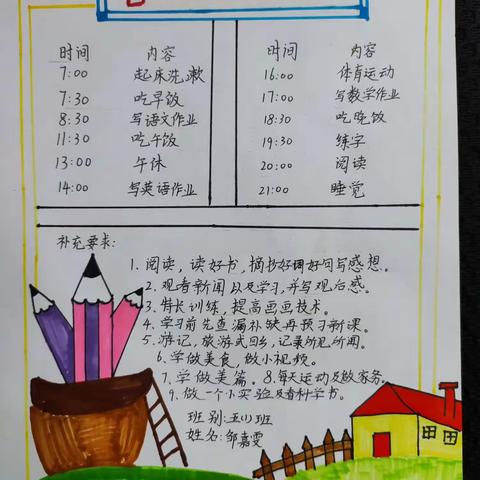 时间 内容
7:00 起床洗漱
7:30 吃早饭
8:30 写语文作业
11:30 吃午饭
13:00 午休
14:00 写英语作业
时间 内容
16:00 体育运动
17:00 写数学作业
18:30 吃晚饭
19:30 练字
20:00 阅读
21:00 睡觉
补充要求:
1. 阅读，读好书，摘抄好词好句写感想。
2. 观看新闻以及学习，并写观后感。
3. 特长训练，提高画画技术。
4. 学习前先查漏补缺再预习新课。
5. 游记，旅游或回乡，记录所见所闻。
6. 学做美食，做小视频。
7. 学做美篇。8. 每天运动及做家务。
9. 做一个小实验及看科学书。
班别:五(1)班
姓名:邹嘉雯